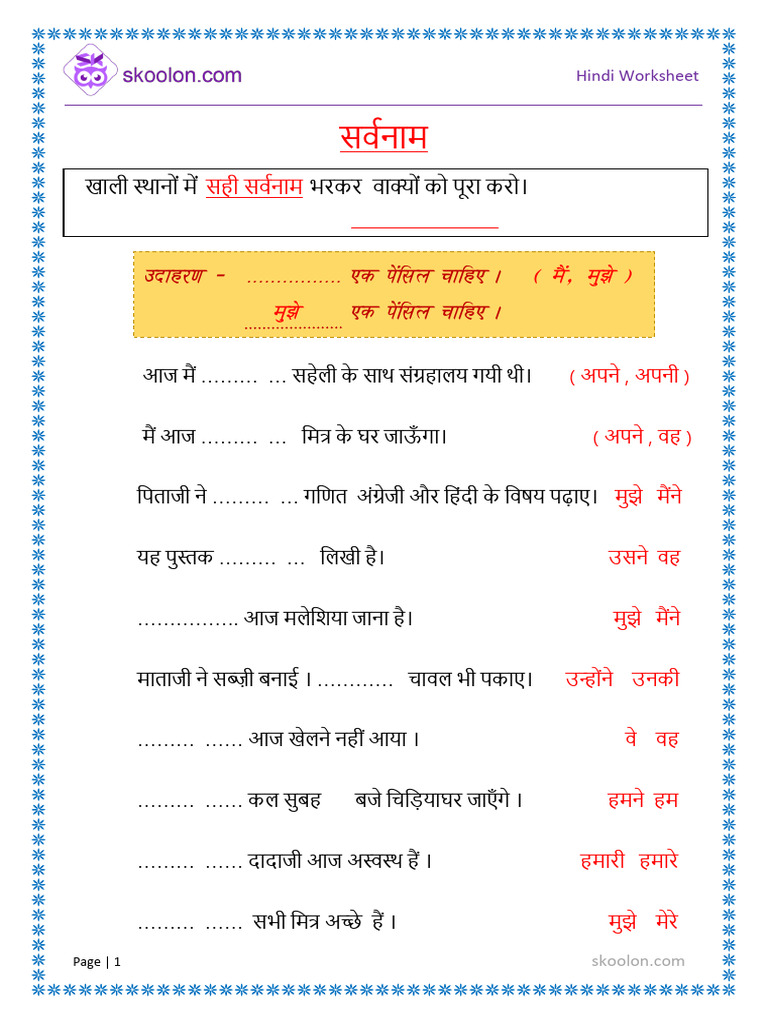 skoolon.com
Hindi Worksheet
सर्वनाम
खाली स्थानों में सही सर्वनाम भरकर वाक्यों को पूरा करो।
उदाहरण - ................ एक पेंसिल चाहिए । ( मैं, मुझे )
मुझे एक पेंसिल चाहिए ।
आज मैं ......... ... सहेली के साथ संग्रहालय गयी थी। ( अपने , अपनी )
मैं आज ......... ... मित्र के घर जाऊँगा। ( अपने , वह )
पिताजी ने ......... ... गणित अंग्रेजी और हिंदी के विषय पढ़ाए। मुझे मैंने
यह पुस्तक ......... ... लिखी है। उसने वह
................ आज मलेशिया जाना है। मुझे मैंने
माताजी ने सब्ज़ी बनाई । ............ चावल भी पकाए। उन्होंने उनकी
......... ...... आज खेलने नहीं आया । वे वह
......... ...... कल सुबह बजे चिड़ियाघर जाएँगे । हमने हम
......... ...... दादाजी आज अस्वस्थ हैं । हमारी हमारे
......... ...... सभी मित्र अच्छे हैं । मुझे मेरे
Page | 1
skoolon.com